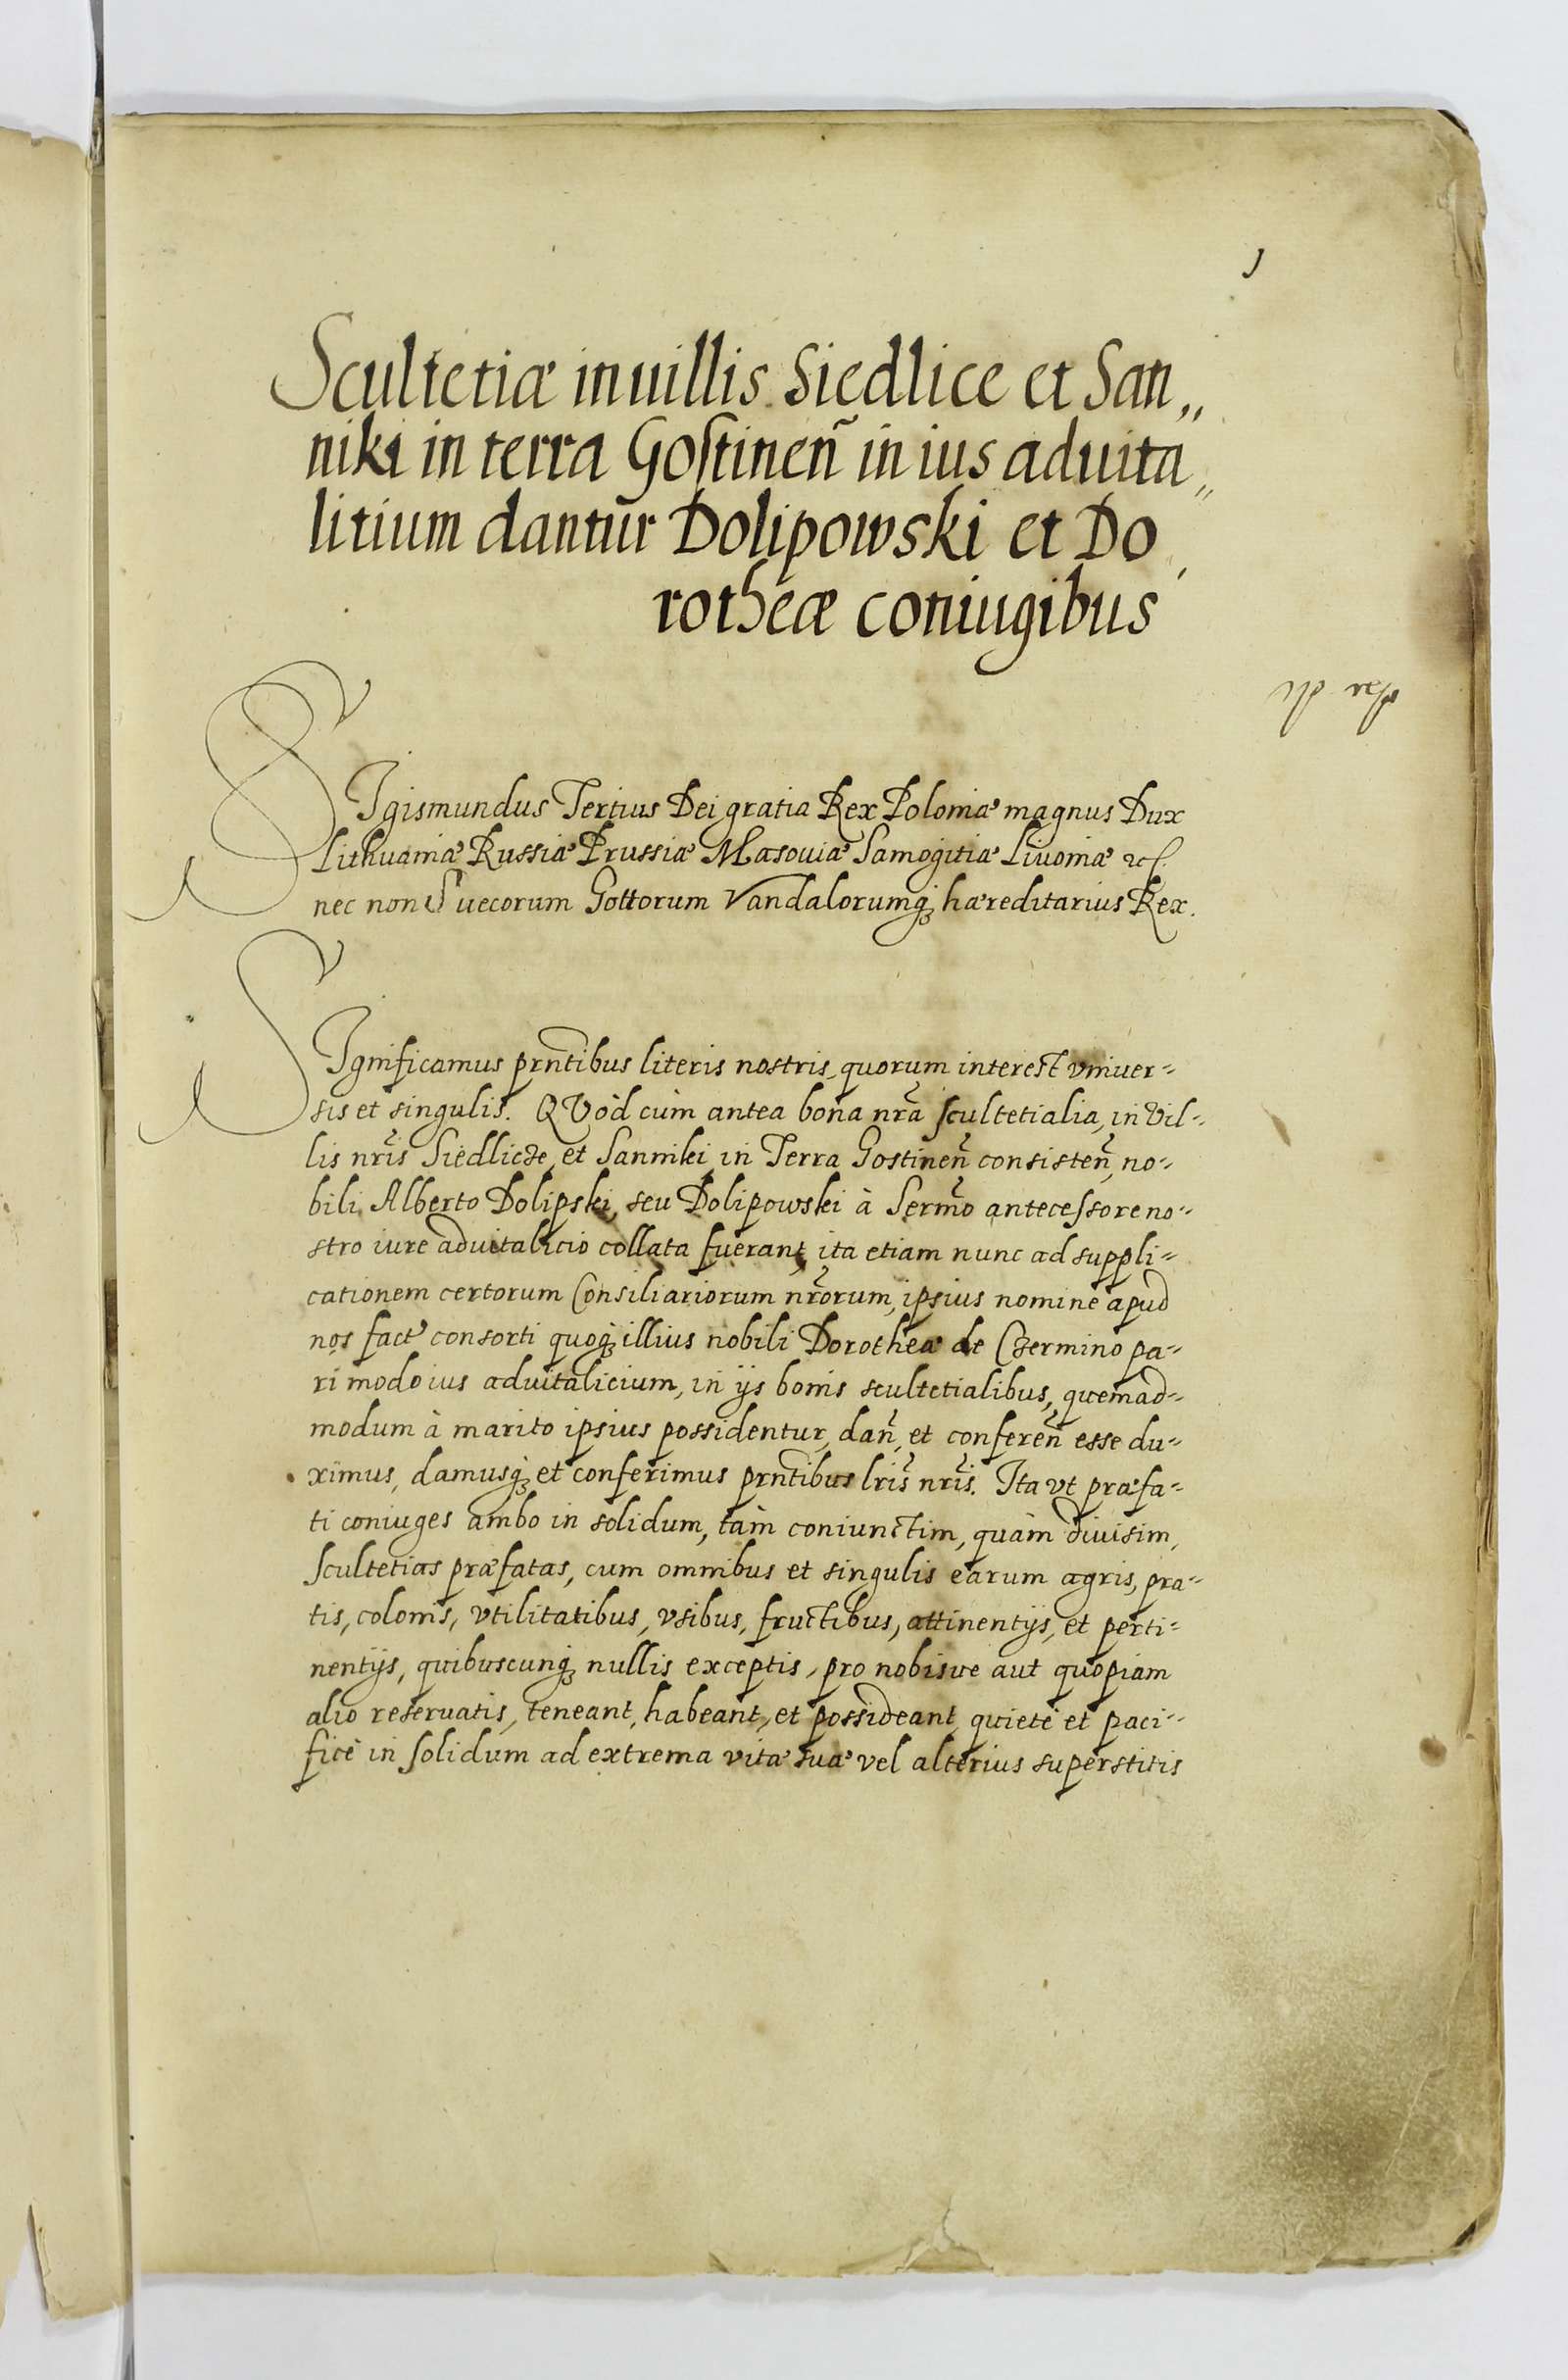 1
Scultetiæ in uillis Siedlice et San„
niki in terra Gostinen̄ in ius aduita„
litium dantur Dolipowski et Do„
rotheæ coniugibus
SIgismundus Tertius Dei gratia Rex Poloniæ magnus Dux
Lithuaniæ Russiæ Prussiæ Masouiæ Samogitiæ Liuoniæ etc.
nec non Suecorum Gottorum Vandalorumq́ꝫ hæreditarius Rex.
SIgnificamus prn̄tibus literis nostris, quorum interest vniuer=
sis et singulis. QVòd cùm antea bona nr̄a scultetialia, in Vil=
lis nr̄is Siedlicze, et Sanniki in Terra Gostinen̄ consisten̄, no=
bili Alberto Dolipski, seu Dolipowski à Serm̄o antecessore no=
stro iure aduitalicio collata fuerant, ita etiam nunc ad suppli=
cationem certorum Consiliariorum nr̄orum, ipsius nomine apud
nos fact' consorti quoq́ꝫ illius nobili Dorotheæ de Czermino pa=
ri modo ius aduitalicium, in ijs bonis scultetialibus, quemad=
modum à marito ipsius possidentur, dan̄, et conferen̄ esse du=
ximus, damusq́ꝫ et conferimus prn̄tibus lr̄is nr̄is. Ita vt præfa=
ti coniuges ambo in solidum, tàm coniunctim, quàm diuisim,
scultetias præfatas, cum omnibus et singulis earum agris, pra=
tis, colonis, vtilitatibus, vsibus, fructibus, attinentijs, et perti=
nentijs, quibuscunq́ꝫ nullis exceptis, pro nobisue aut quopiam
alio reseruatis, teneant, habeant, et possideant, quietè et paci=
ficè in solidum ad extrema vitæ suæ vel alterius superstitis